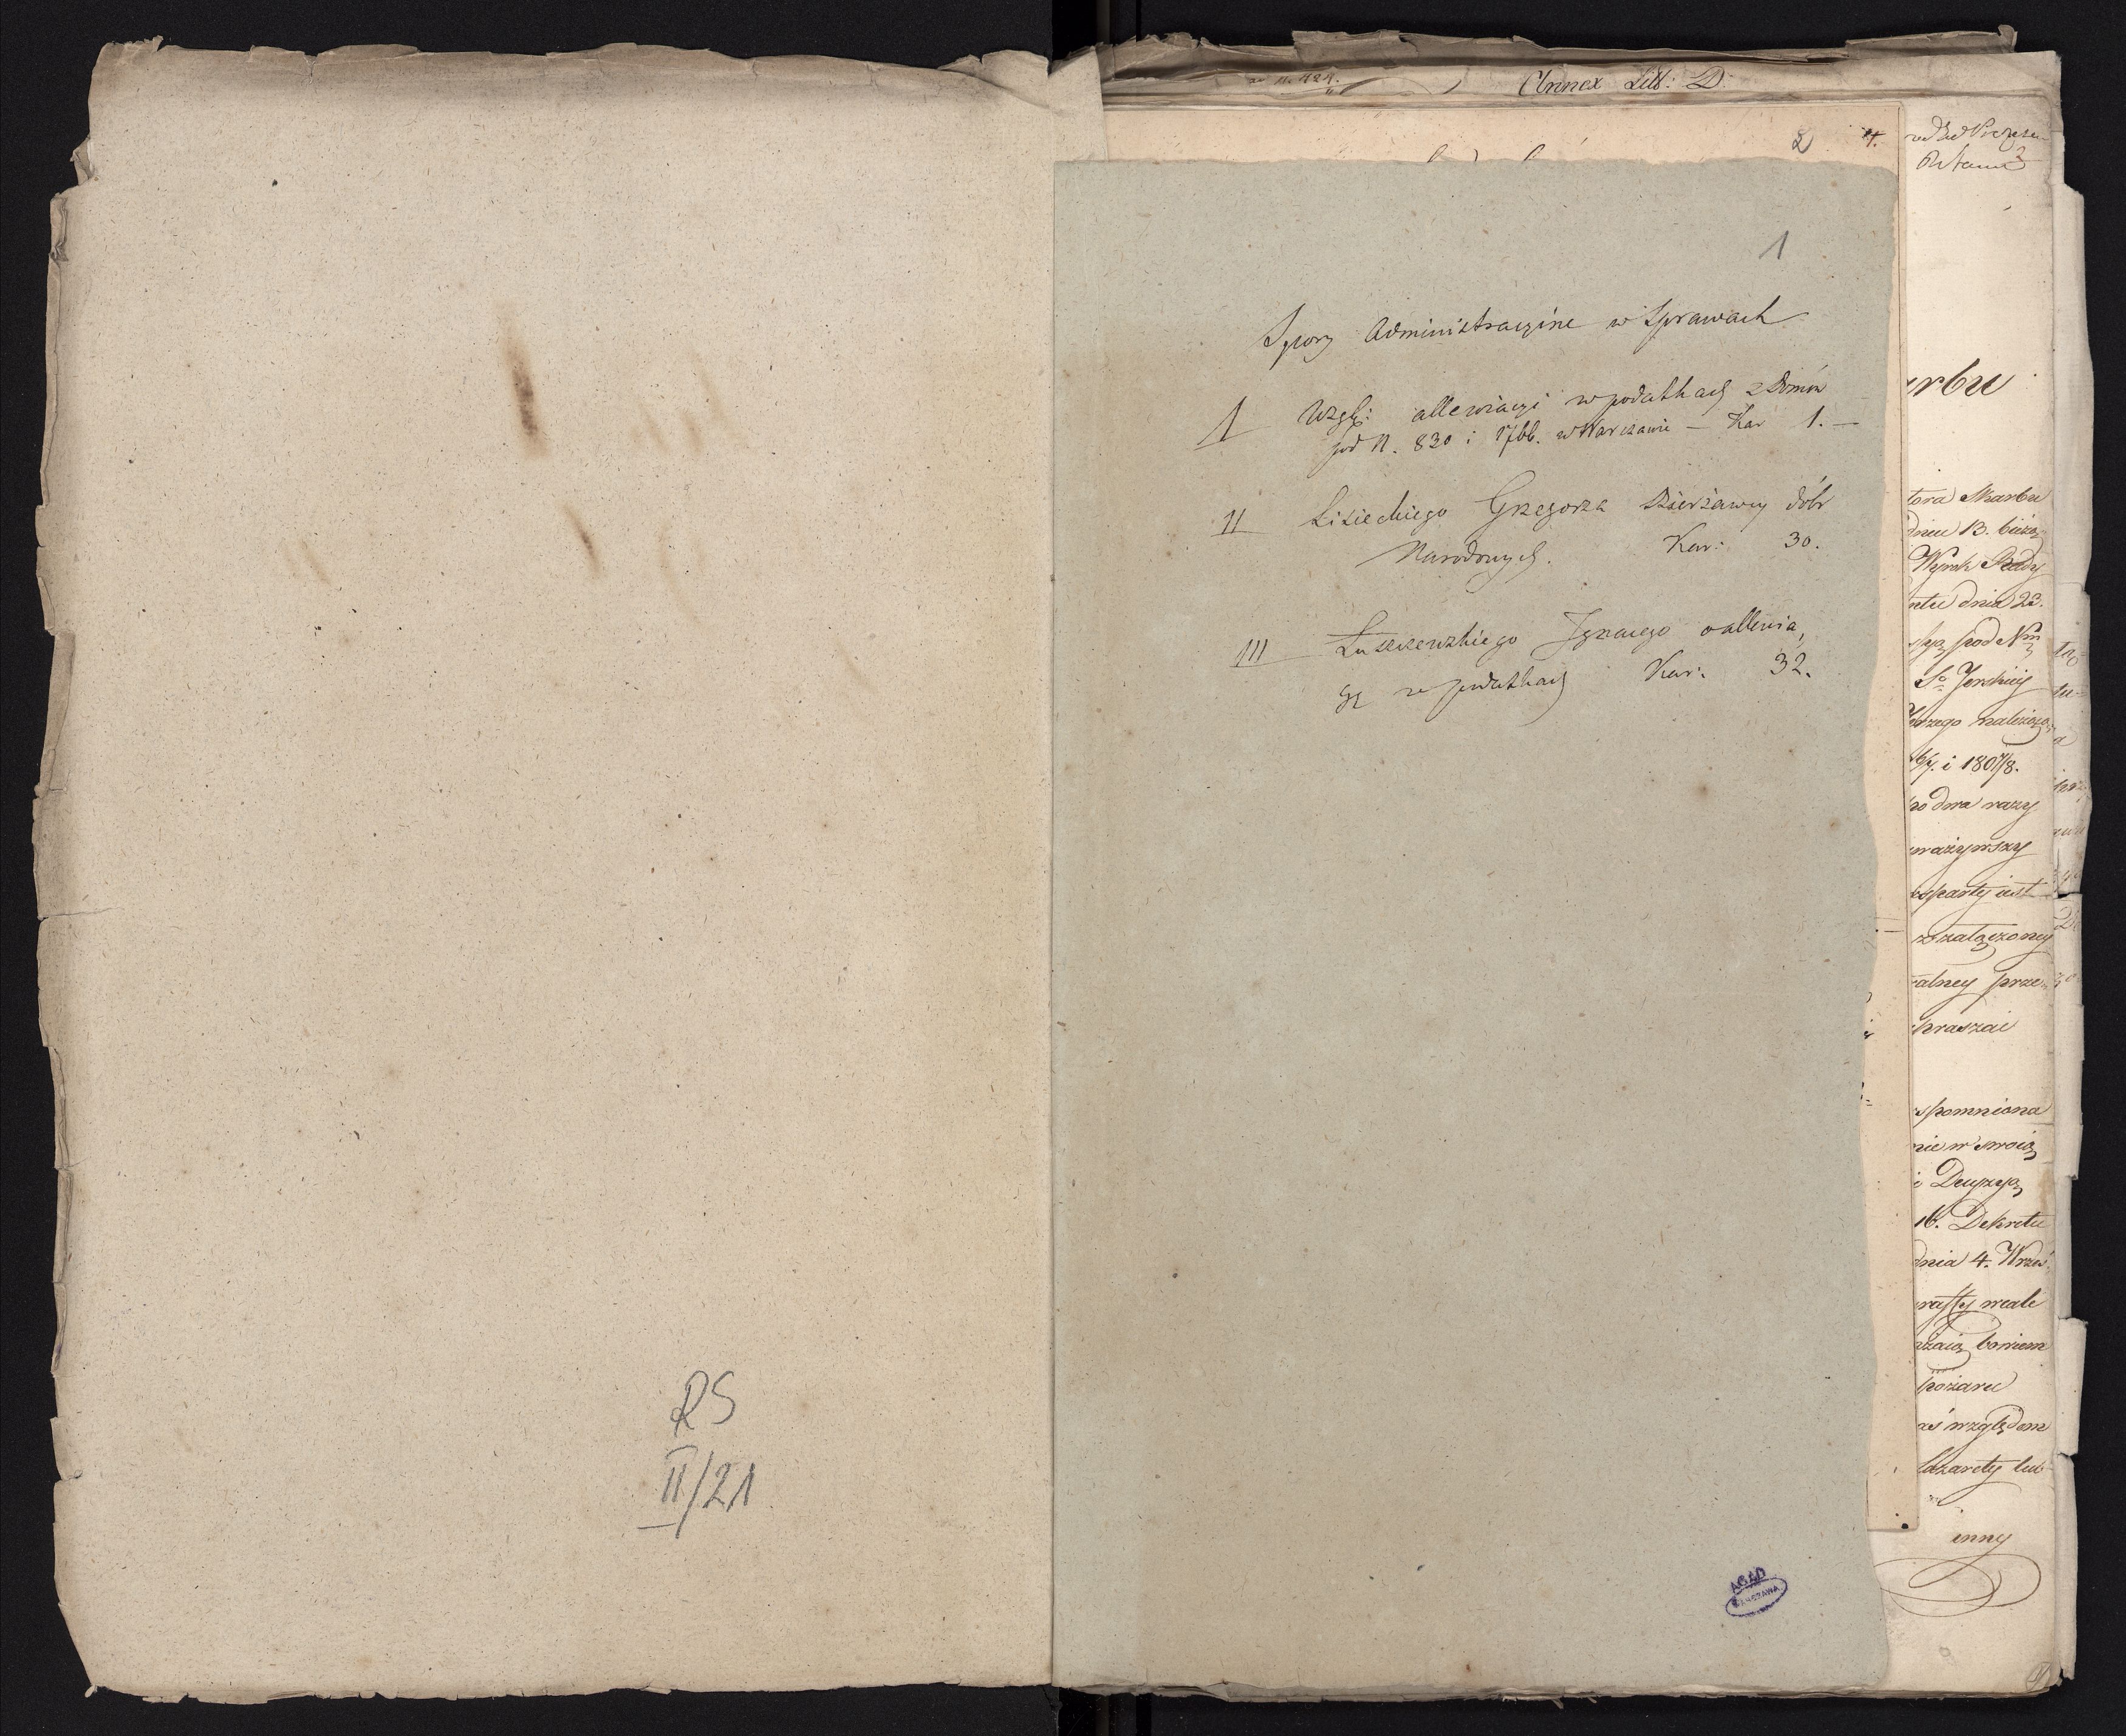 RS
II/21
Annex Litt: D.
2 4.
1
Spory Administracyine w Sprawach
I Wzgl: allewiacyi w podatkach z Domów
pod N. 830 i 1766. w Warszawie — Kar 1. —
II Lisieckiego Grzegorza Dzierżawcy dóbr
Narodowych. Kar: 30.
III Łuszczewskiego Ignacego o allewia,
cyę w podatkach Kar: 32.
AGAD
WARSZAWA
rbu
tora Skarbu
dnia 13. bieżą
Wyrok Rady
dnia 23.
pod Nrm
Jerskiey
należąc
i 1807/8.
dwa razy
uważywszy
wsparty iest
załączoney
alney prze
praszać
spomniona
nie w swoią
i Decyzyą
16. Dekretu
dnia 4. Wrześ
bowiem
pożaru
względem
Lazarety lub
inny